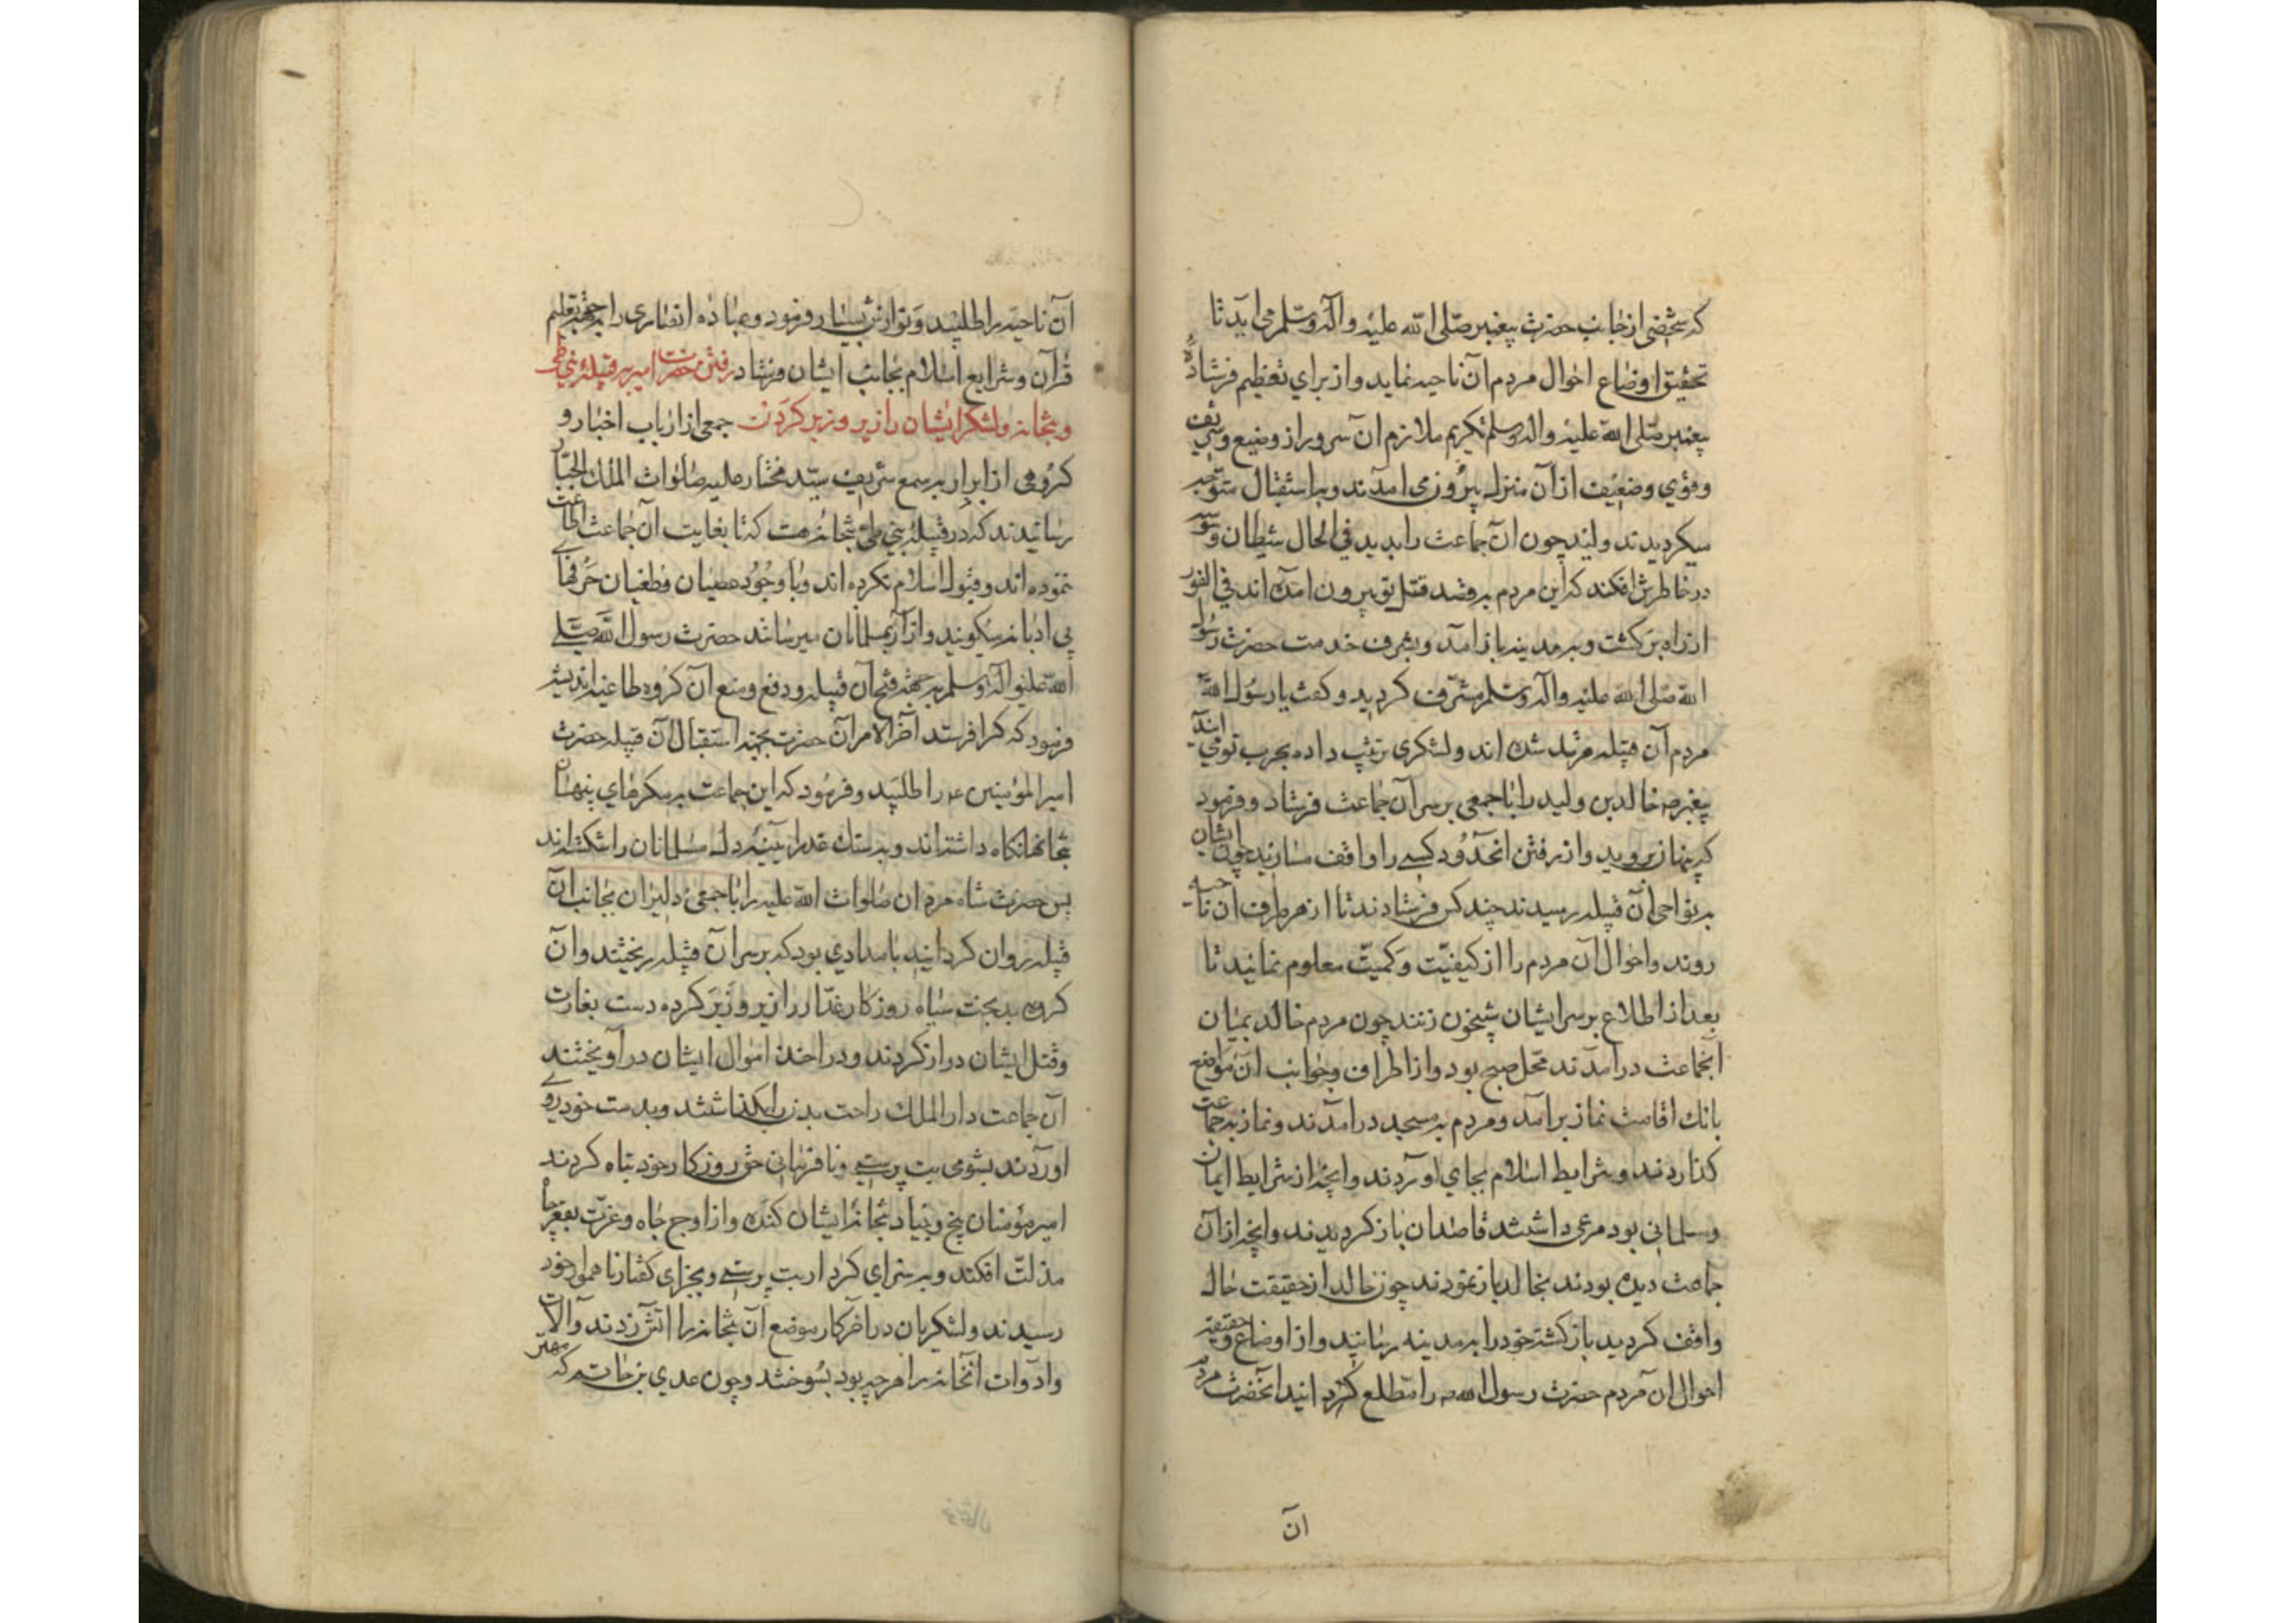 که شخصی از جانب حضرت پیغمبر صلی الله علیه و آله وسلم می آید تا
تحقیق اوضاع احوال مردم آن ناحیه نماید و از برای تعظیم فرستاده
پیغمبر صلی الله علیه واله وسلم تکریم ملازم ان سرور از وضیع و شریف
و قوی و ضعیف از آن منزل بیرون می امدند و به استقبال متوجه
میکردیدند ولید چون ان جماعت را بدید فی الحال شیطان وسوسه
در خاطرش افکند که این مردم به قصد قتل تو بیرون امده اند فی الفور
از راه برکشت و به مدینه باز امد و بشرف خدمت حضرت رسول
الله صلی الله علیه واله وسلم مشرف کردید و کفت یا رسول الله
مردم آن قبیله مرتد شده اند و لشکری ترتیب داده بحرب تو می ایند
پیغمبر ص خالد بن ولید را با جمعی بر سر آن جماعت فرستاد و فرمود
که پنهان بروید و از رفتن انحدود کسی را واقف مسازید چون ایشان
به نواحی آن قبیله رسیدند چند کس فرستادند تا از هر طرف ان ناحیه
روند و احوال ان مردم را از کیفیت و کمیت معلوم نمایند تا
بعد از اطلاع بر سر ایشان شبیخون زنند چون مردم خالد بمیان
انجماعت در امدند محل صبح بود و از اطراف و جوانب ان مواضع
بانک اقامت نماز برامد و مردم به مسجد در امدند و نماز به جماعت
کذاردند و شرایط اسلام بجای اوردند و انچه از شرایط ایمان
و مسلمانی بود مرعی داشتند قاصدان باز کردیدند و انچه از آن
جماعت دیده بودند بخالد باز نمودند چون خالد از حقیقت حال
واقف کردید باز کشته خود را به مدینه رسانید و از اوضاع و حقیقت
احوال ان مردم حضرت رسول الله ص را مطلع کردانید انحضرت مردم
ان
آن ناحیه را طلبید و نوازش بسیار فرمود و عباده انصاری را به جهة تعلیم
قرآن و شرایع اسلام بجانب ایشان فرستاد رفتن حضرت امیر بر قبیله بنی طی
و بتخانه و لشکر ایشان را زیر و زبر کردن جمعی از ارباب اخبار و
کروهی از ابرار به سمع شریف سید مختار علیه صلوات الملک الجبار
رسانیدند که در قبیله بنی طی بتخانه هست که تا بغایت آن جماعت اطاعت
ننموده اند و قبول اسلام نکرده اند و با وجود عصیان و طغیان حرفهای
بی ادبانه میکویند و ازار بمسلمانان میرسانند حضرت رسول الله صلی
الله علیه و آله وسلم به جهة فتح آن قبیله و دفع و منع آن کروه طاغیه اندیشه
فرمود که کرا فرستد آخر الامر آن حضرت بجهة استقبال آن قبیله حضرت
امیر المؤمنین ع را طلبید و فرمود که این جماعت به مکرهای پنهان
بتخانها نکاه داشته اند و به سنک غدر ابینه دل مسلمانان را شکسته اند
پس حضرت شاه مردان صلوات الله علیه را با جمعی دلیران بجانب آن
قبیله روان کردانید بامدادی بود که بر سر آن قبیله ریختند و آن
کروه بدبخت سیاه روزکار غدار را زیر و زبر کرده دست بغارت
و قتل ایشان دراز کردند و در اخذ اموال ایشان در آویختند
آن جماعت دار الملک راحت بدر بکذاشتند و بدست خود روی
اوردند بشومی بت پرستی و نافرمانی حق روزکار خود تباه کردند
امیر مؤمنان بیخ و بنیاد بتخانه ایشان کنده و از اوج جاه و عزت بقعر چاه
مذلت افکند و به سزای کردار بت پرستی و بجزای کفتار ناهموار خود
رسیدند و لشکریان در آخر کار موضع آن بتخانه را اتش زدند و آلات
و ادوات انخانه را هر چه بود بسوختند و چون عدی بن حاتم که مهتر